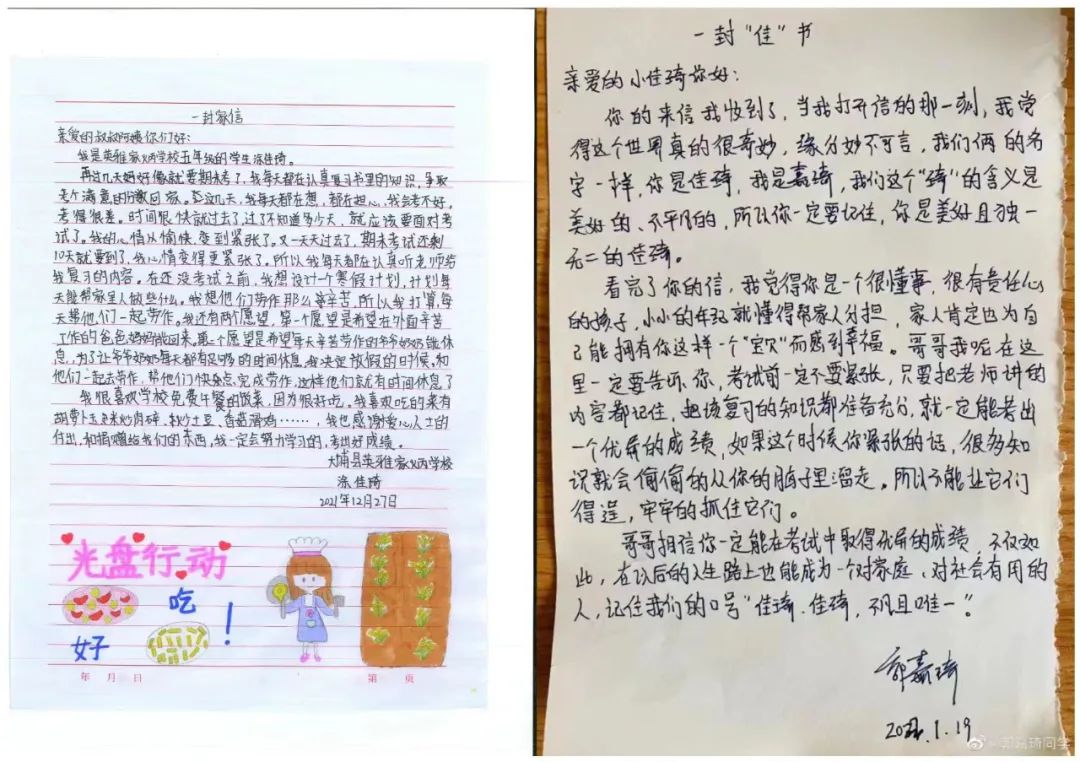 一封家信
亲爱的叔叔阿姨你们好：
我是英雅家炳学校五年级的学生涂佳琦。
再过几天好像就要期末考了，我每天都在认真复习书里的知识，争取
考个满意的分数回家。这几天，我每天都在想，都在担心，我会考不好，
考得很差。时间很快就过去了，过了不知道多少天，就应该要面对考
试了。我的心情从愉快，变到紧张了。又一天天过去了，期末考试还剩
10天就要到了，我心情变得更紧张了。所以我每天都在认真听老师给
我复习的内容。在还没考试之前，我想设计一个寒假计划，计划每
天能帮家里人做些什么。我想他们劳作那么辛苦，所以我打算，每
天帮他们一起劳作。我还有两个愿望，第一个愿望是希望在外面辛苦
工作的爸爸妈妈能回来。第二个愿望是希望每天辛苦劳作的爷爷奶奶能休
息，为了让爷爷奶奶每天都有足够的时间休息，我决定放假的时候，和
他们一起去劳作，帮他们快点完成劳作，这样他们就有时间休息了
我很喜欢学校免费午餐的饭菜，因为很好吃。我喜欢吃的菜有
胡萝卜玉米炒肉碎、秋炒土豆、香菇滑鸡……，我也感谢爱心人士的
付出，和捐赠给我们的东西，我一定会努力学习的，考出好成绩。
大埔县英雅家炳学校
涂佳琦
2021年12月27日
光盘行动
吃
好
！
年 月 日
第 页
一封“佳”书
亲爱的小佳琦你好：
你的来信我收到了，当我打开信的那一刻，我觉
得这个世界真的很奇妙，缘分妙不可言，我们俩的名
字一样，你是佳琦，我是嘉琦，我们这个“琦”的含义是
美好的、不平凡的，所以你一定要记住，你是美好且独一
无二的佳琦。
看完了你的信，我觉得你是一个很懂事，很有责任心
的孩子，小小的年纪就懂得帮家人分担，家人肯定也为自
己能拥有你这样一个“宝贝”而感到幸福。哥哥我呢在这
里一定要告诉你，考试前一定不要紧张，只要把老师讲的
内容都记住，把该复习的知识都准备充分，就一定能考出
一个优异的成绩，如果这个时候你紧张的话，很多知
识就会偷偷的从你的脑子里溜走。所以不能让它们
得逞，牢牢的抓住它们。
哥哥相信你一定能在考试中取得优异的成绩，不仅如
此，在以后的人生路上也能成为一个对家庭、对社会有用的
人，记住我们的口号“佳琦，佳琦，不凡且唯一”。
郭嘉琦
2022.1.19